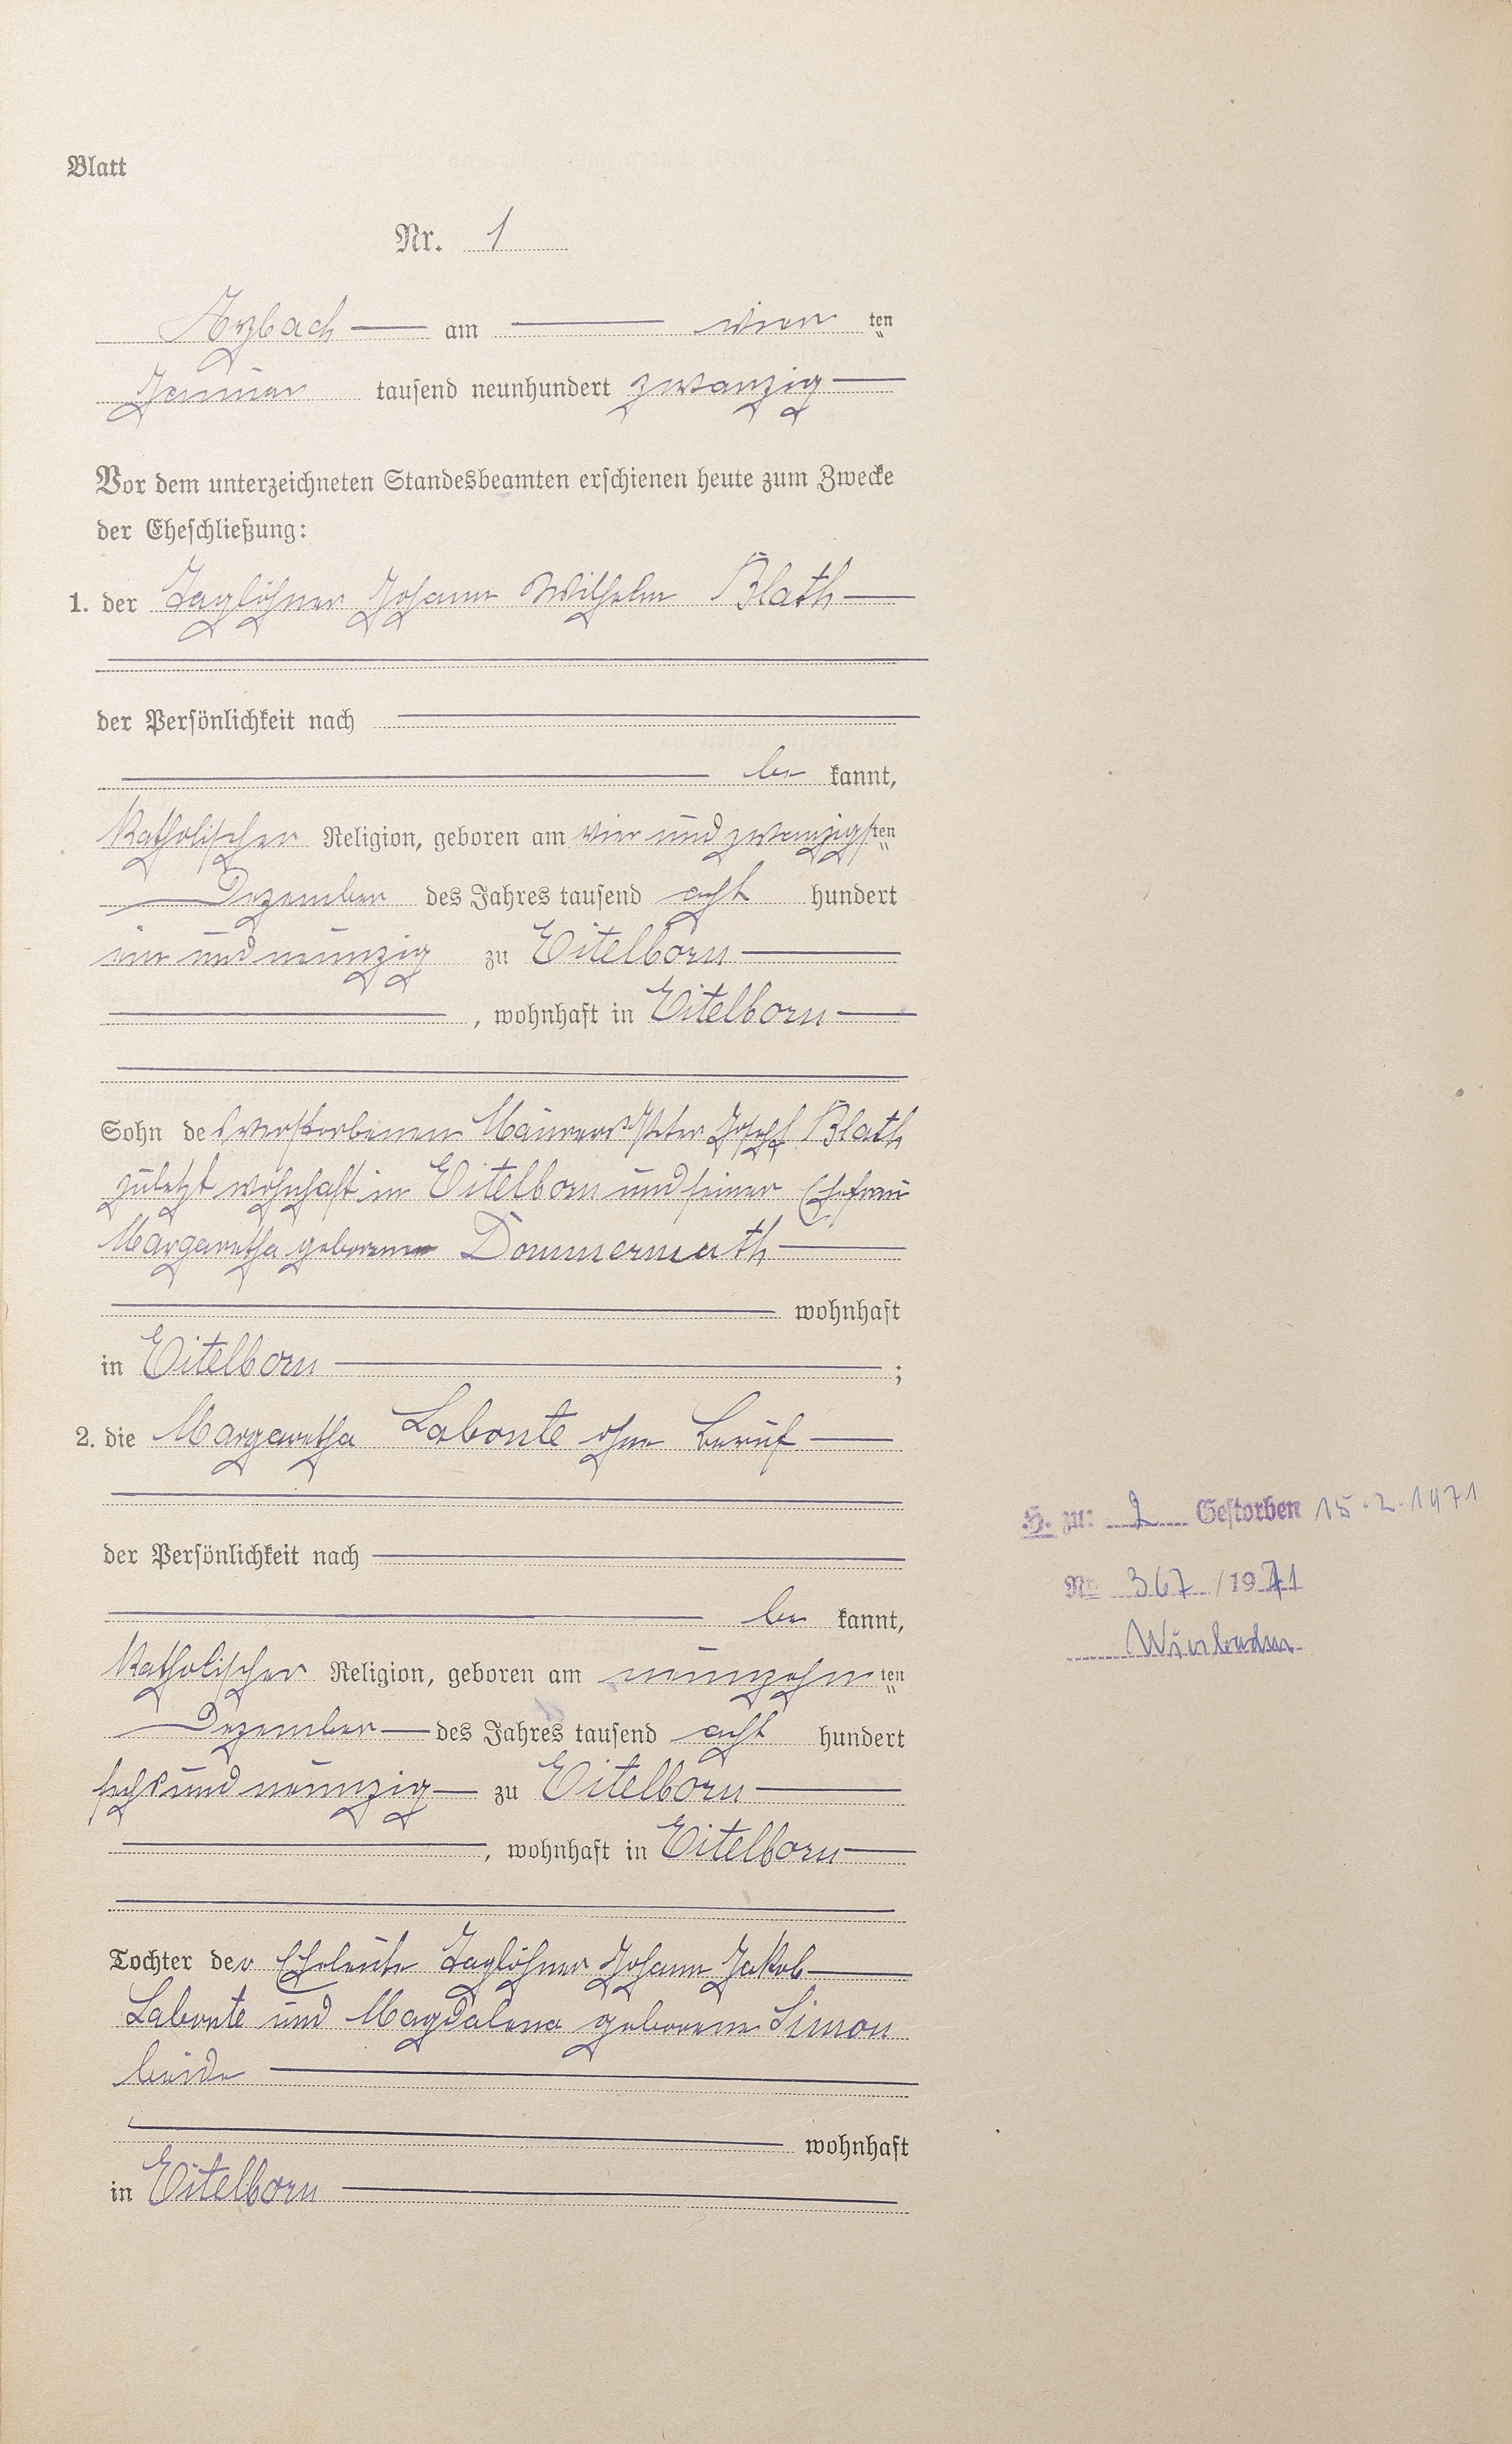 Blatt
Nr. 1
Arzbach am vier ten
Januar tausend neunhundert zwanzig
Vor dem unterzeichneten Standesbeamten erschienen heute zum Zwecke
der Eheschließung:
1. der Taglöhner Johann Wilhelm Blath
der Persönlichkeit nach
be kannt,
katholischer Religion, geboren am vier und zwanzigsten
Dezember des Jahres tausend acht hundert
und neunzig zu Eitelborn
, wohnhaft in Eitelborn
Sohn des verstorbenen Maurers Peter Josef Blath
zuletzt wohnhaft in Eitelborn und seiner Ehefrau
Margaretha geborenen Dommermuth
wohnhaft
in Eitelborn ;
2. die Margaretha Labonte ohne Beruf
der Persönlichkeit nach
be kannt,
katholischer Religion, geboren am neunzehn ten
Dezember des Jahres tausend acht hundert
sechs und neunzig zu Eitelborn
, wohnhaft in Eitelborn
Tochter der Eheleute Taglöhner Johann Jakob
Labonte und Magdalena geborene Simon
beide
wohnhaft
in Eitelborn
H. zu: 2 Gestorben 15.2.1971
Nr. 367 / 1971
Wiesbaden